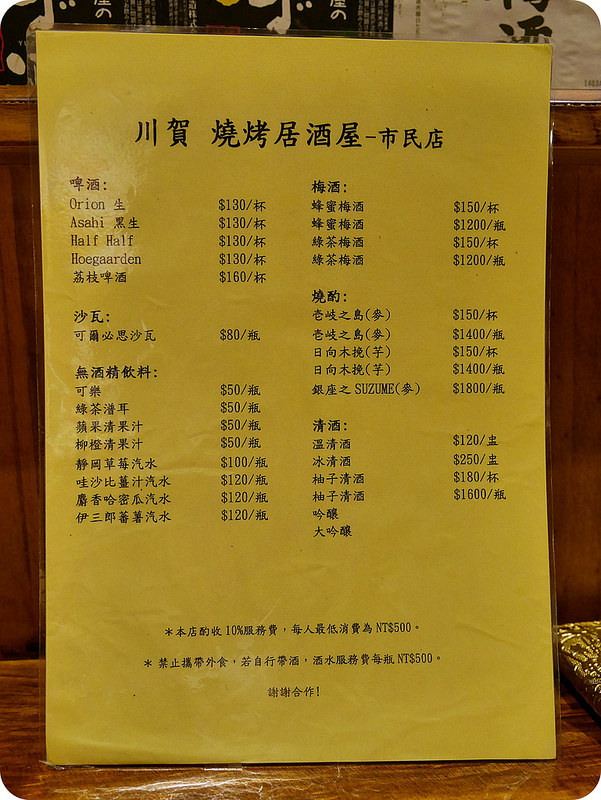 川賀 燒烤居酒屋-市民店
啤酒:
Orion 生 $130/杯
Asahi 黑生 $130/杯
Half Half $130/杯
Hoegaarden $130/杯
荔枝啤酒 $160/杯
沙瓦:
可爾必思沙瓦 $80/瓶
無酒精飲料:
可樂 $50/瓶
綠茶潽耳 $50/瓶
蘋果清果汁 $50/瓶
柳橙清果汁 $50/瓶
靜岡草莓汽水 $100/瓶
哇沙比薑汁汽水 $120/瓶
麝香哈密瓜汽水 $120/瓶
伊三郎蕃薯汽水 $120/瓶
梅酒:
蜂蜜梅酒 $150/杯
蜂蜜梅酒 $1200/瓶
綠茶梅酒 $150/杯
綠茶梅酒 $1200/瓶
燒酌:
壱岐之島(麥) $150/杯
壱岐之島(麥) $1400/瓶
日向木挽(芋) $150/杯
日向木挽(芋) $1400/瓶
銀座之 SUZUME(麥) $1800/瓶
清酒:
溫清酒 $120/盅
冰清酒 $250/盅
柚子清酒 $180/杯
柚子清酒 $1600/瓶
吟釀
大吟釀
＊本店酌收 10%服務費，每人最低消費為 NT$500。
＊ 禁止攜帶外食，若自行帶酒，酒水服務費每瓶 NT$500。
謝謝合作!